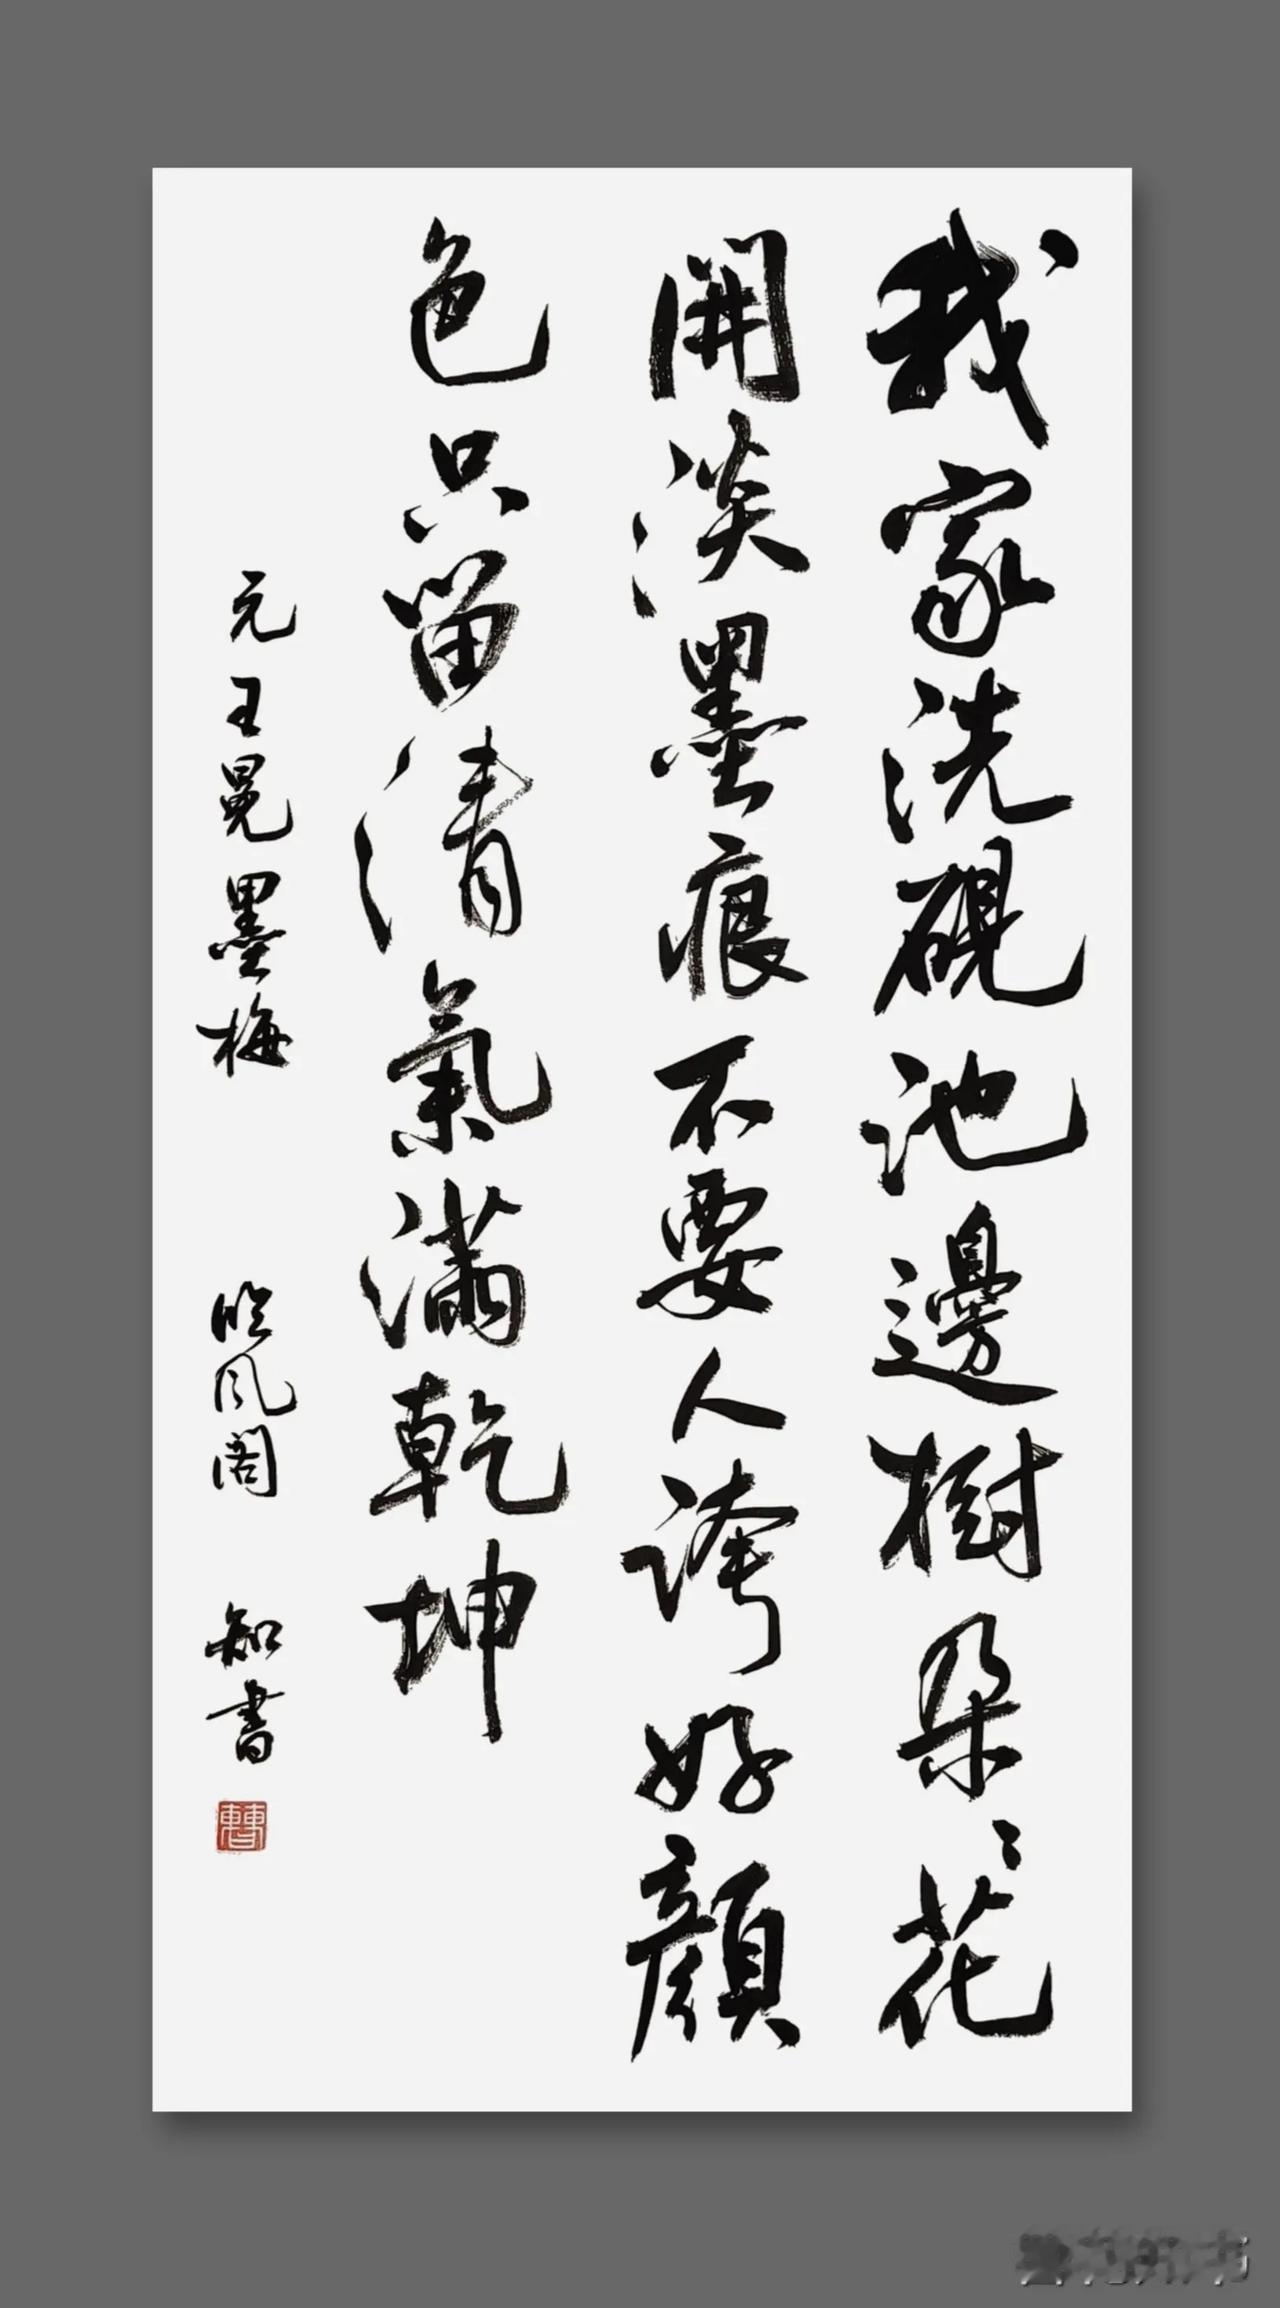 我家洗硯池邊樹朵〻花
開淡墨痕不要人誇好顏
色只留清氣滿乾坤
元王冕墨梅 临风阁 知書